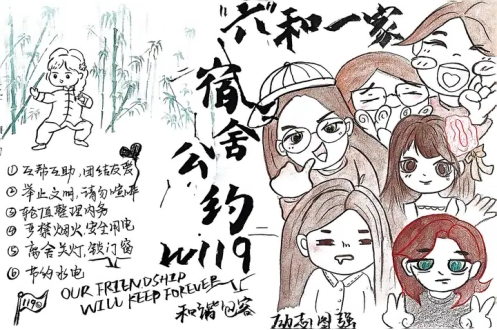 "六"和一家
宿舍公约
W119
①互帮互助,团结友爱
②举止文明,请勿喧哗
③轮值整理内务
④严禁烟火,安全用电
⑤离舍关灯,锁门窗
⑥节约水电
119
OUR FRIENDSHIP
WILL KEEP FOREVER
和谐
励志图强